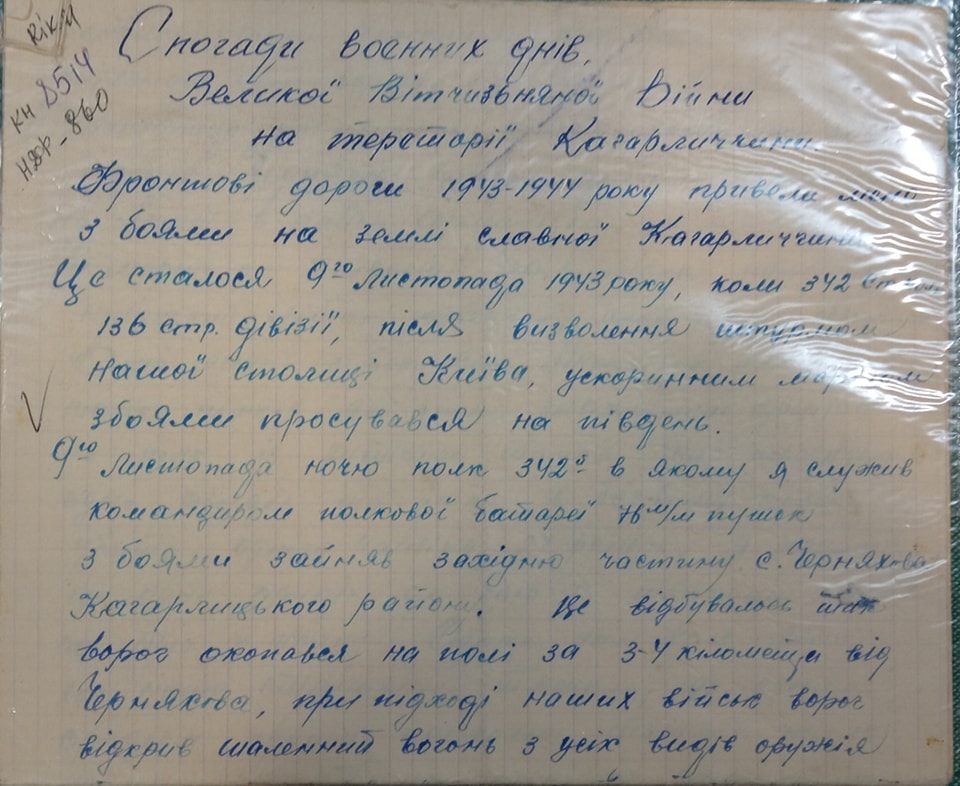 РІКМ
КН 8514
НДФ-860
Спогади воєнних днів,
Великої Вітчизьняної Війни
на терторії Кагарличчини.
Фронтові дороги 1943-1944 року привели мене
з боями на землі славної Кагарличчини
Це сталося 9го Листопада 1943 року, коли 342
136 стр. дівізії, після визволення штурмом
нашої столиці Київа, ускоринним маршом
збоями просувався на південь.
9го Листопада ночю полк 342й в якому я служив
командиром полкової батареї 76 м/м пушок
з боями зайняв західню частину с. Черняхова
Кагарлицького району. Це відбувалось так
ворог окопався на полі за 3-4 кілометра від
Черняхова, при підході наших військ ворог
відкрив шаленний вогонь з усіх видів оружія